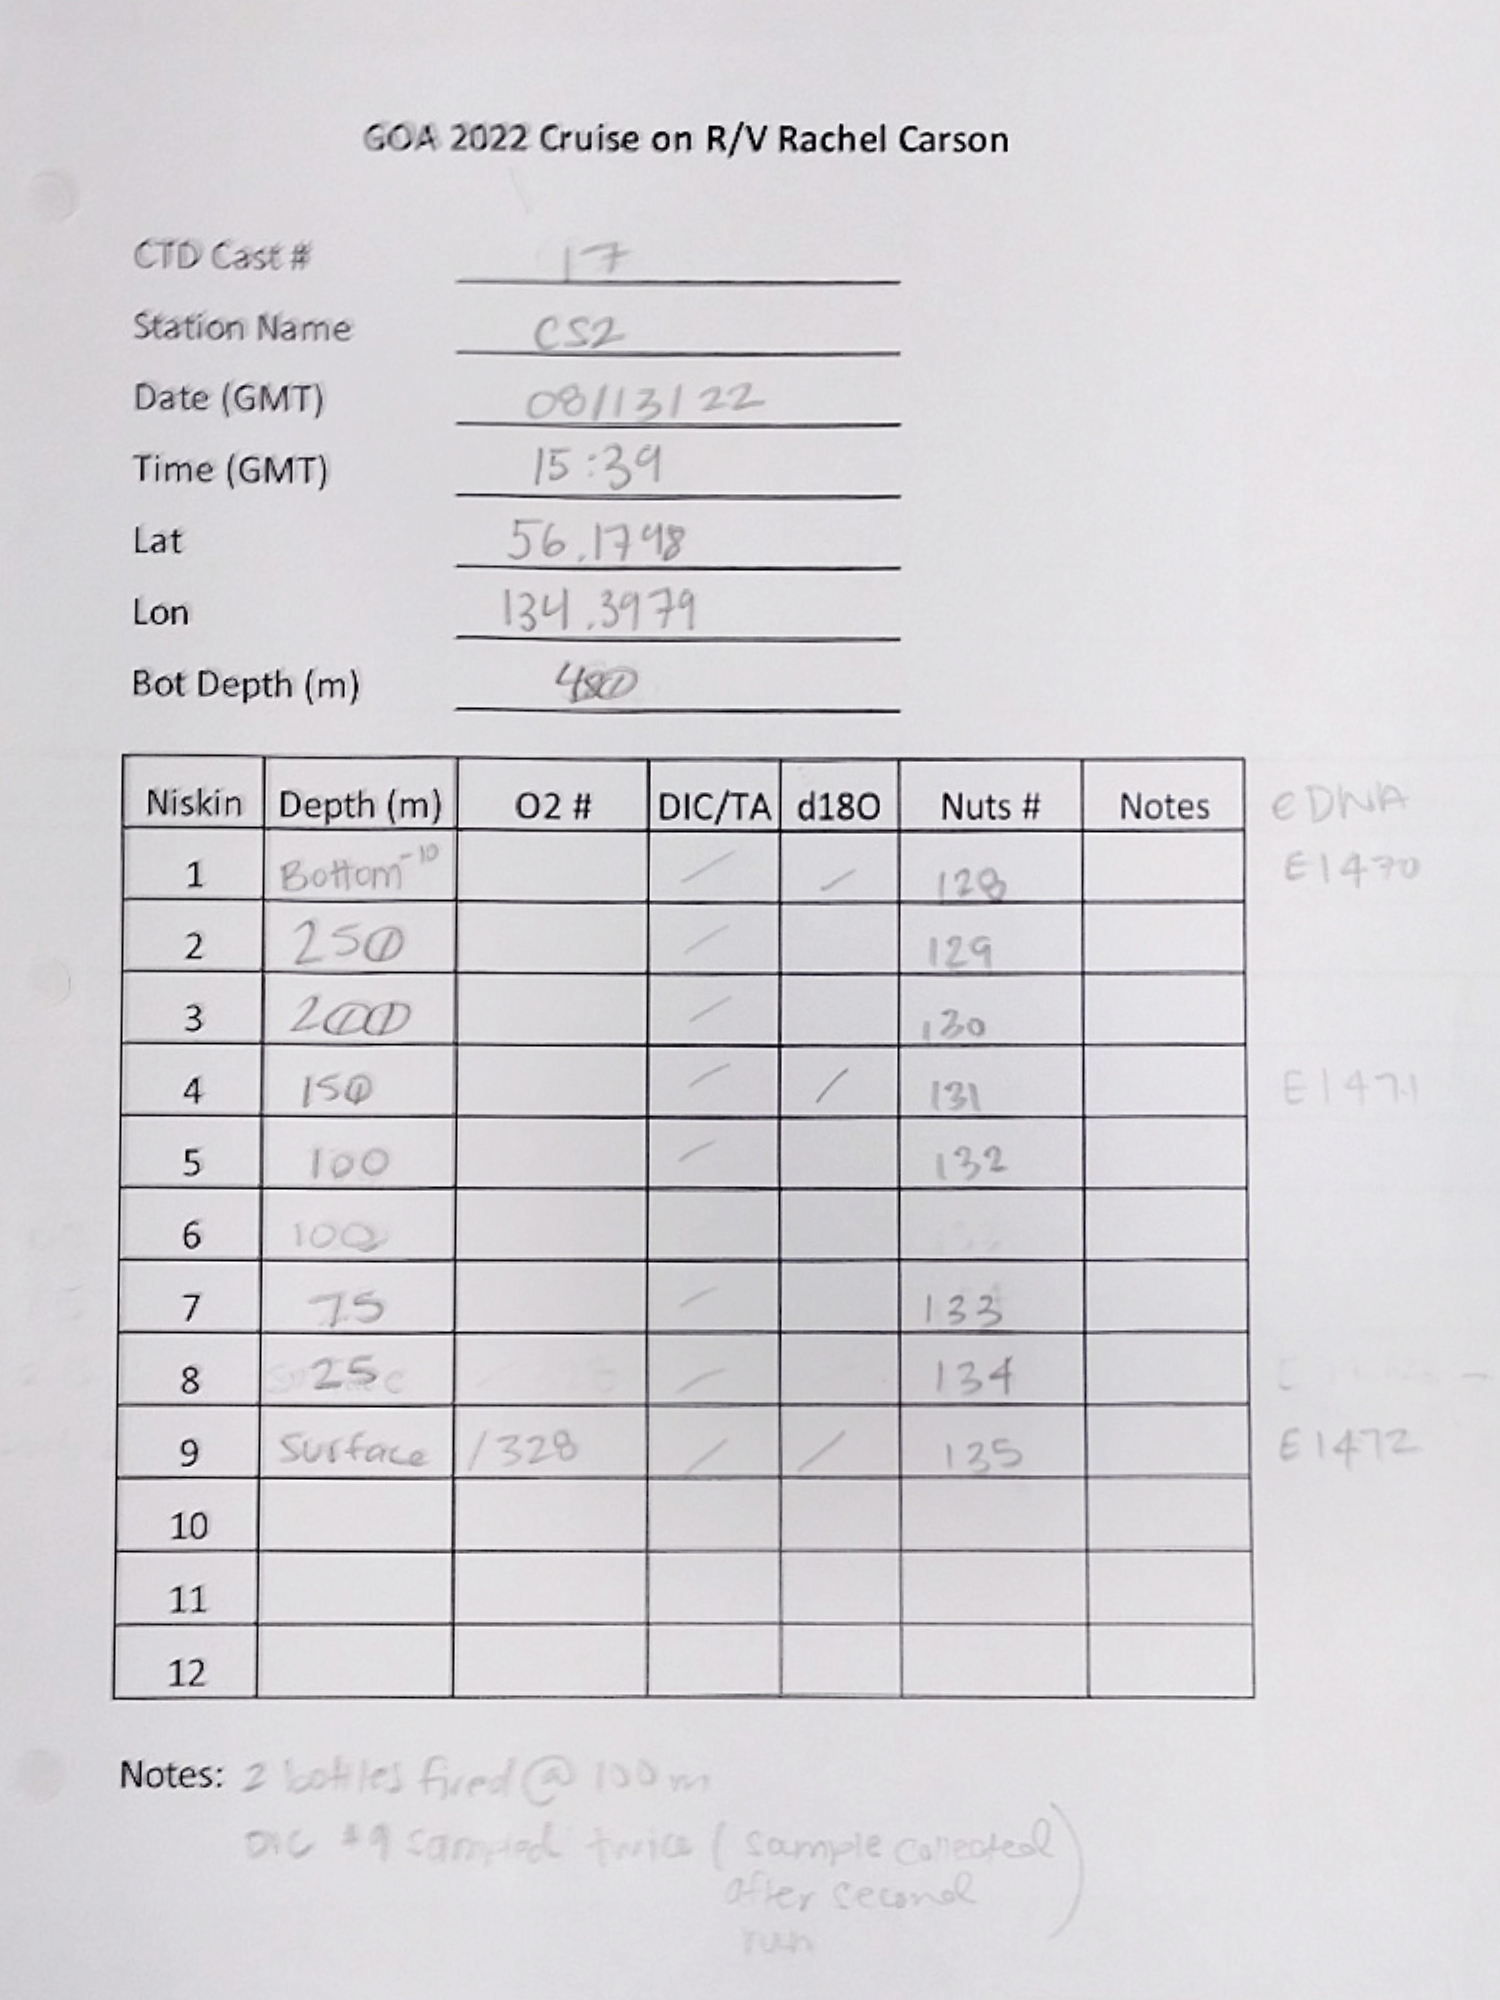 GOA 2022 Cruise on R/V Rachel Carson
CTD Cast # 17
Station Name CS2
Date (GMT) 08/13/22
Time (GMT) 15:39
Lat 56.1798
Lon 134.3979
Bot Depth (m) 480
Niskin Depth (m) O2 # DIC/TA d18O Nuts # Notes eDNA
1 Bottom-10 / / 128 E1470
2 250 / 129
3 200 / 130
4 150 / / 131 E1471
5 100 / 132
6 100
7 75 / 133
8 25 / 134
9 Surface /328 / / 135 E1472
10
11
12
Notes: 2 bottles fired @ 100 m
DIC #9 sampled twice (sample collected
after second
run)